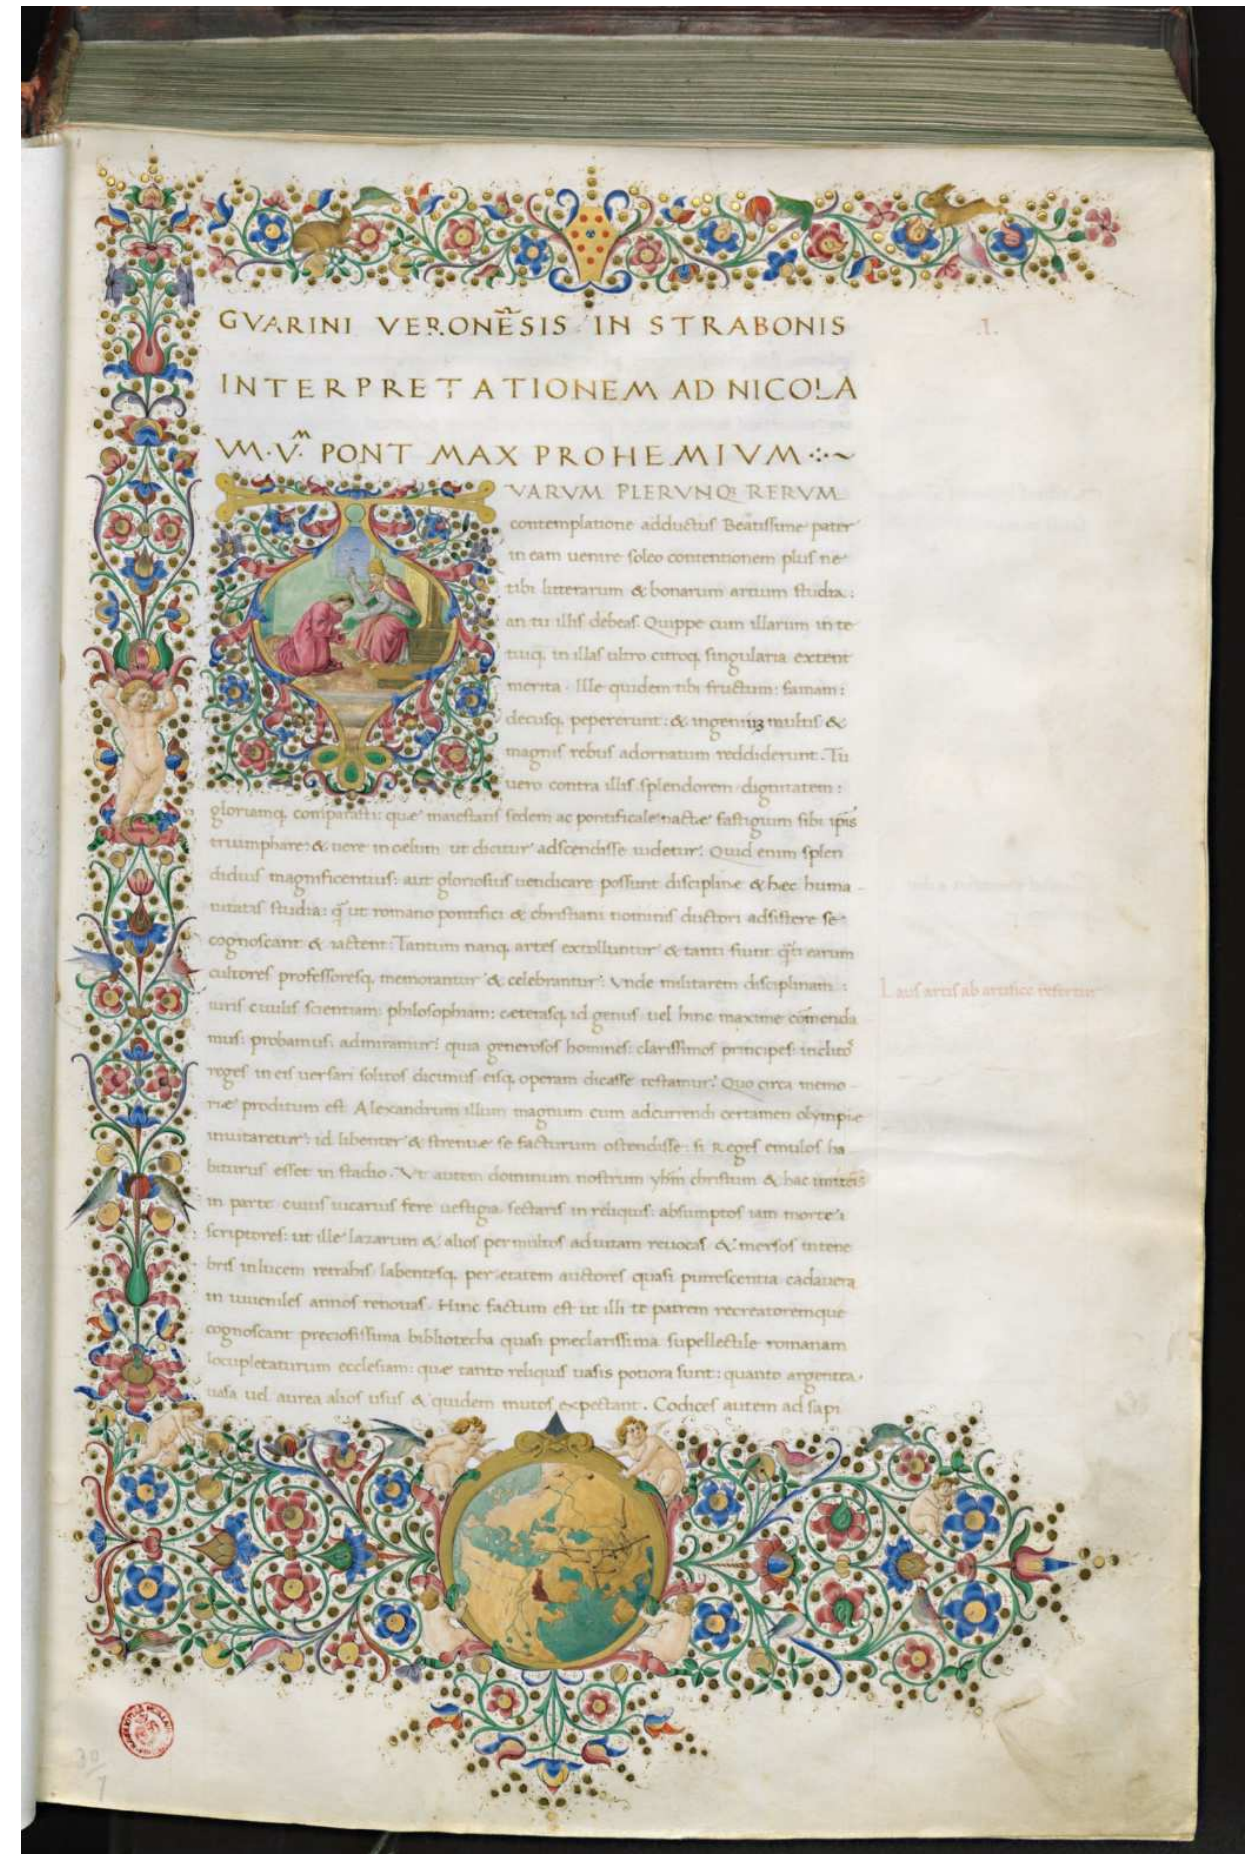 GVARINI VERONẼSIS IN STRABONIS
INTERPRETATIONEM AD NICOLA
VM·V.ᴹ PONT MAX PROHEMIVM
VARVM PLERVNQ RERVM
contemplatione adductus Beatissime pater
in eam uenire soleo contentionem plus ne
tibi litterarum & bonarum artium studia:
an tu illis debeas. Quippe cum illarum in te
tuiq. in illas ultro citroq, singularia extent
merita. Ille quidem tibi fructum: famam:
decusq, pepererunt: & ingeniũ multis &
magnis rebus adornatum reddiderunt. Tu
uero contra illis splendorem dignitatem:
gloriamq, comparasti: quæ maiestatis sedem ac pontificale nactæ fastigium sibi ip̃is
triumphare: & uere in celum ut dicitur adscendisse uidetur. Quid enim splen
didius magnificentius: aut gloriosius uendicare possunt discipline & hec huma-
nitatis studia: q̃ ut romano pontifici & christiani nominis ductori adsistere se
cognoscant & iactent: Tantum nanq, artes extolluntur & tanti fiunt q̃ti earum
cultores professoresq, memorantur & celebrantur: Vnde militarem disciplinam:
iuris ciuilis scientiam: philosophiam: ceterasq, id genus uel hinc maxime cõmenda
mus: probamus: admiramur: quia generosos homines: clarissimos principes: inclito᾿
reges in eis uersari solitos dicimus eisq, operam dicasse testamur. Quo circa memo-
riæ proditum est Alexandrum illum magnum cum ad currendi certamen olympie
inuitaretur: id libenter & strenue se facturum ostendisse: si Reges emulos ha
biturus esset in stadio. Vt autem dominum nostrum yhm̃ christum & hac
in parte cuius uicarius fere uestigia sectaris in reliquis: absumptos iam morte
scriptores: ut ille lazarum & alios permultos ad uitam reuocas & mersos in tene
bris in lucem retrahis labentesq, per etatem auctores quasi putrescentia cadauera
in iuueniles annos renouas. Hinc factum est ut illi te patrem recreatoremque
cognoscant preciosissima bibliotecha quasi preclarissima supellectile romanam
locupletaturum ecclesiam: quæ tanto reliquis uasis potiora sunt: quanto argentea
uasa uel aurea alios usus & quidem mutos expectant. Codices autem ad sapi
.1.
Laus artis ab artifice refertur
30/1